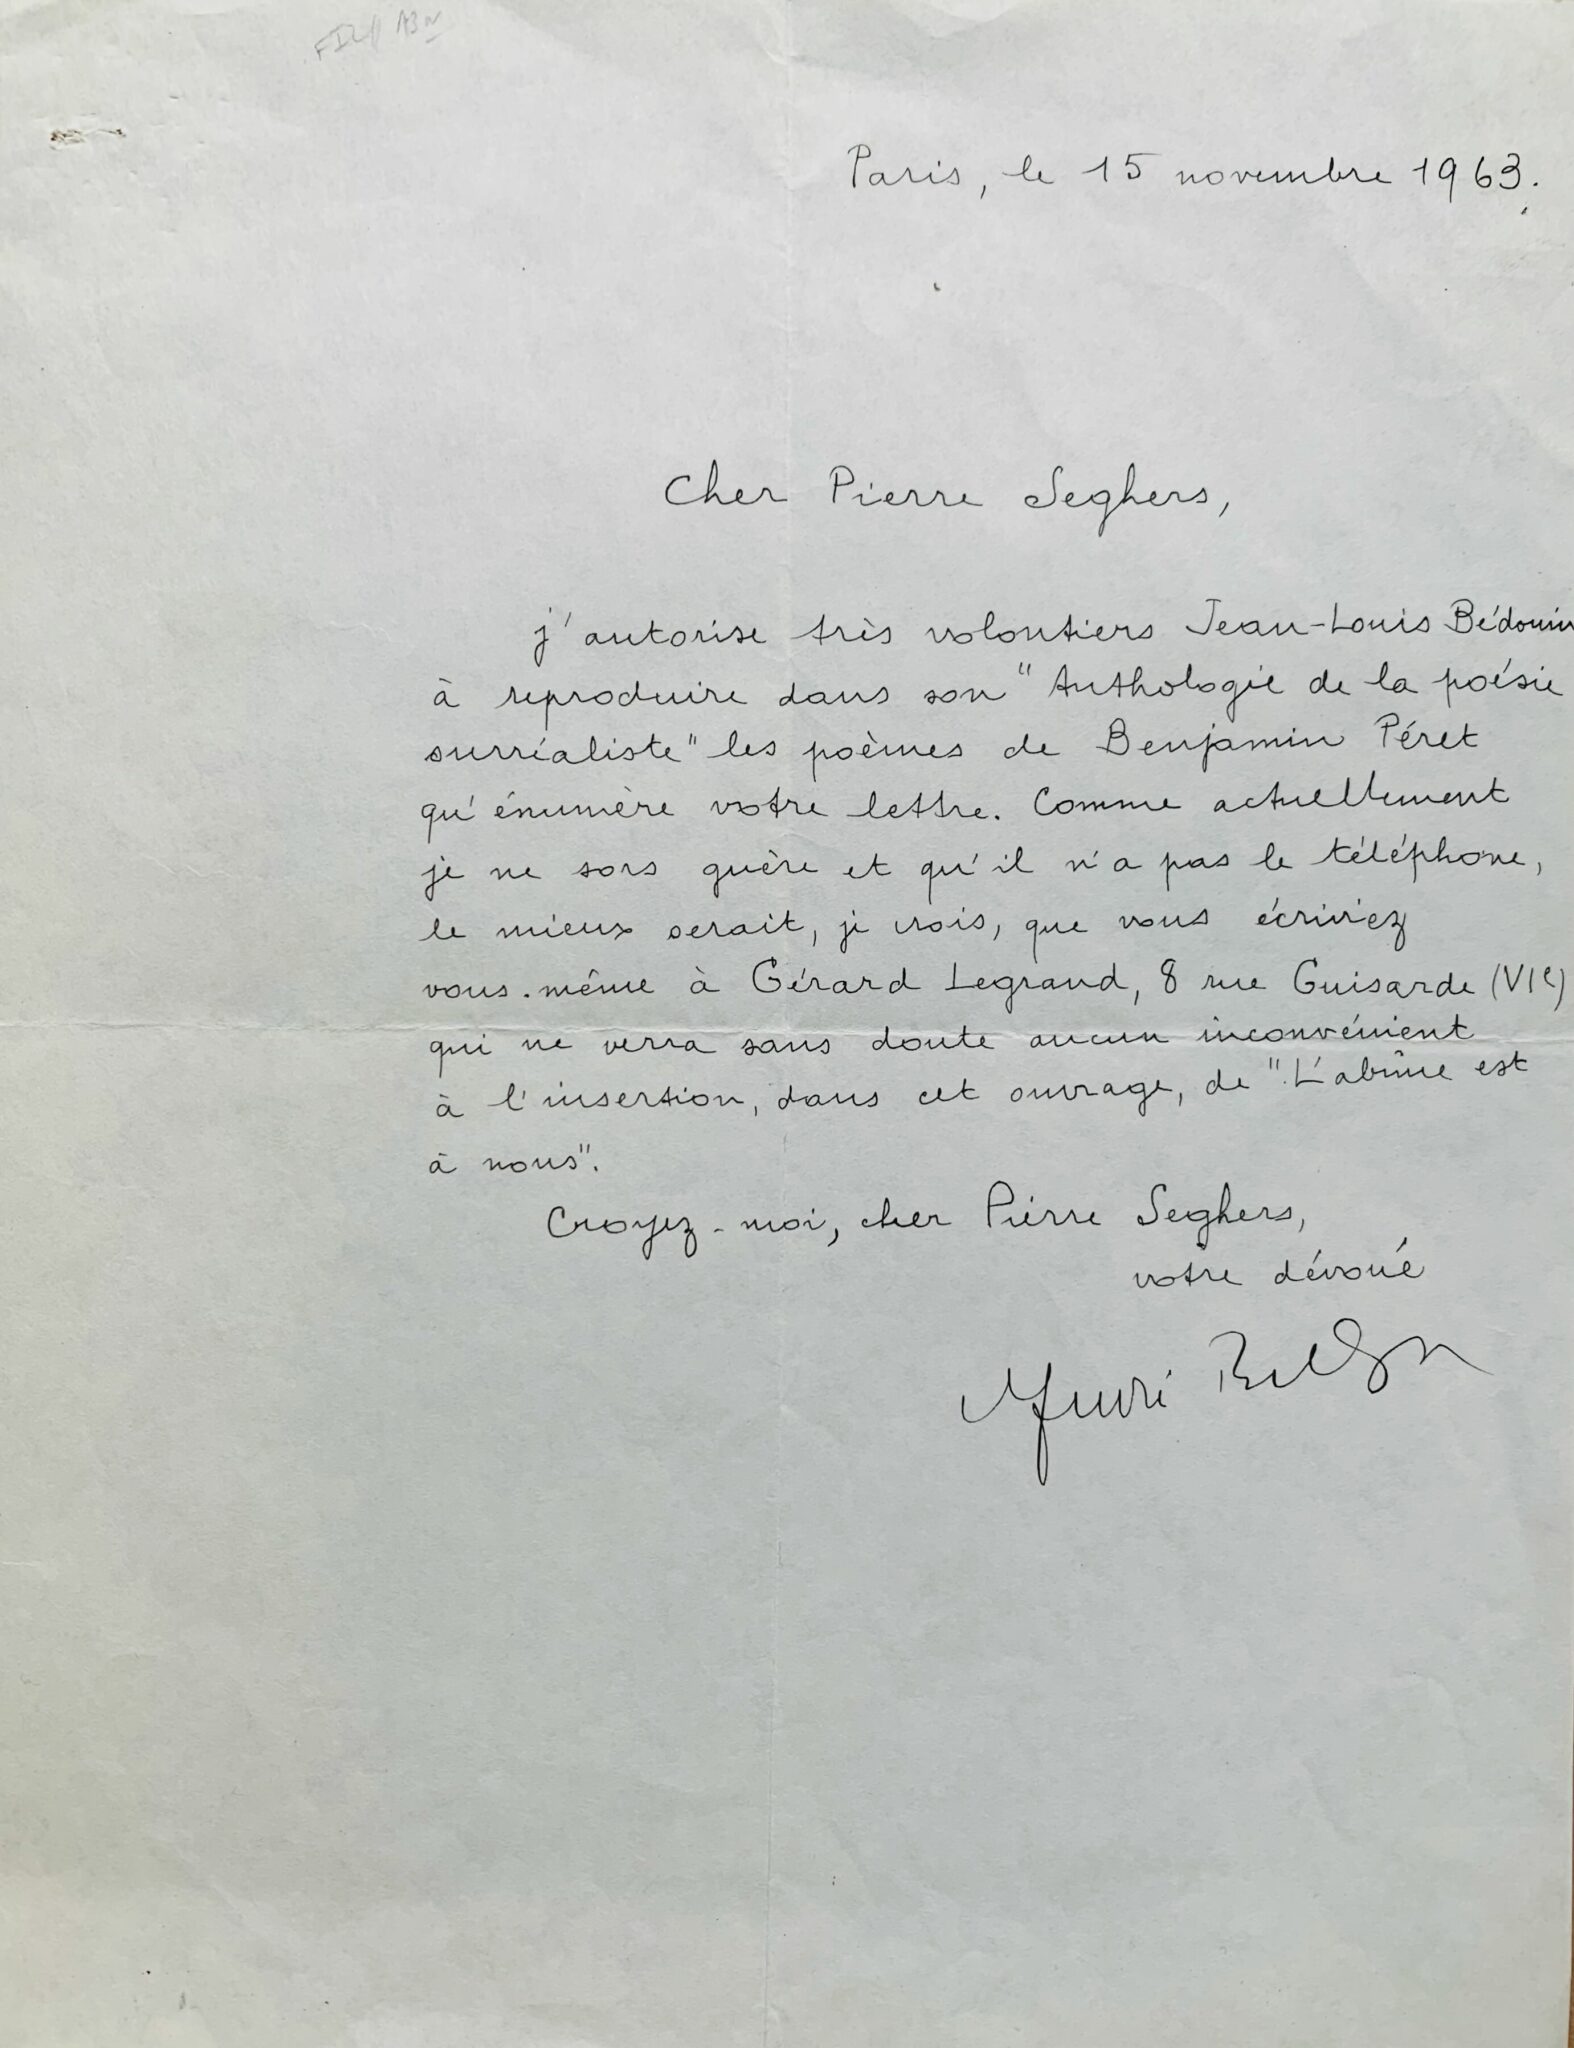 Paris, le 15 novembre 1963.
Cher Pierre Seghers,
j'autorise très volontiers Jean-Louis Bédouin
à reproduire dans son "Anthologie de la poésie
surréaliste" les poèmes de Benjamin Péret
qu'énumère votre lettre. Comme actuellement
je ne sors guère et qu'il n'a pas le téléphone,
le mieux serait, je crois, que vous écriviez
vous-même à Gérard Legrand, 8 rue Guisarde (VIe)
qui ne verra sans doute aucun inconvénient
à l'insertion, dans cet ouvrage, de "L'abîme est
à nous".
Croyez-moi, cher Pierre Seghers,
votre dévoué